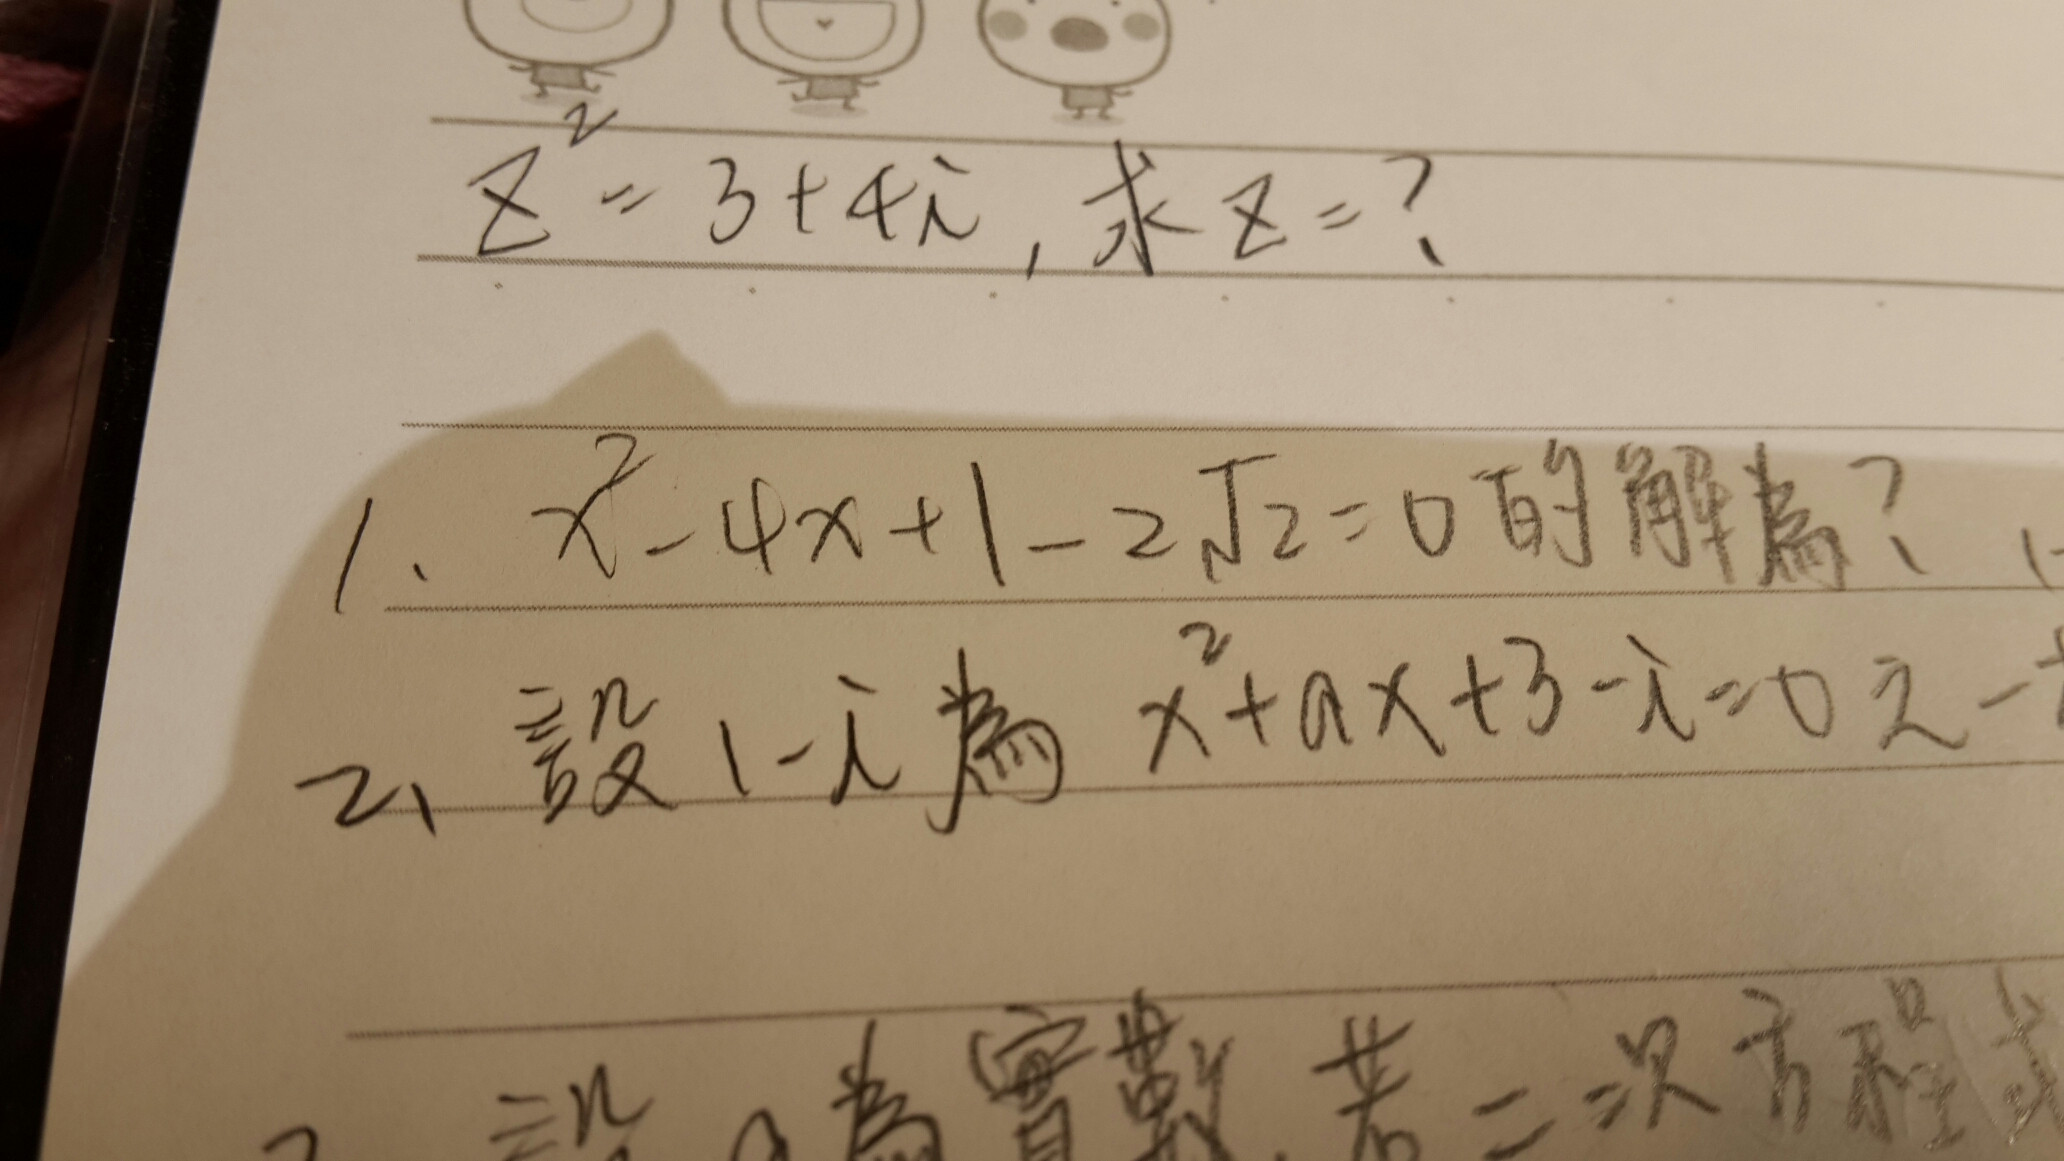 z² = 3+4i, 求 z = ?
1. x² - 4x + 1 - 2√2 = 0 的解為?
2. 設 1-i 為 x² + ax + 3 - i = 0 之一
設 a 為實數, 若二次方程式